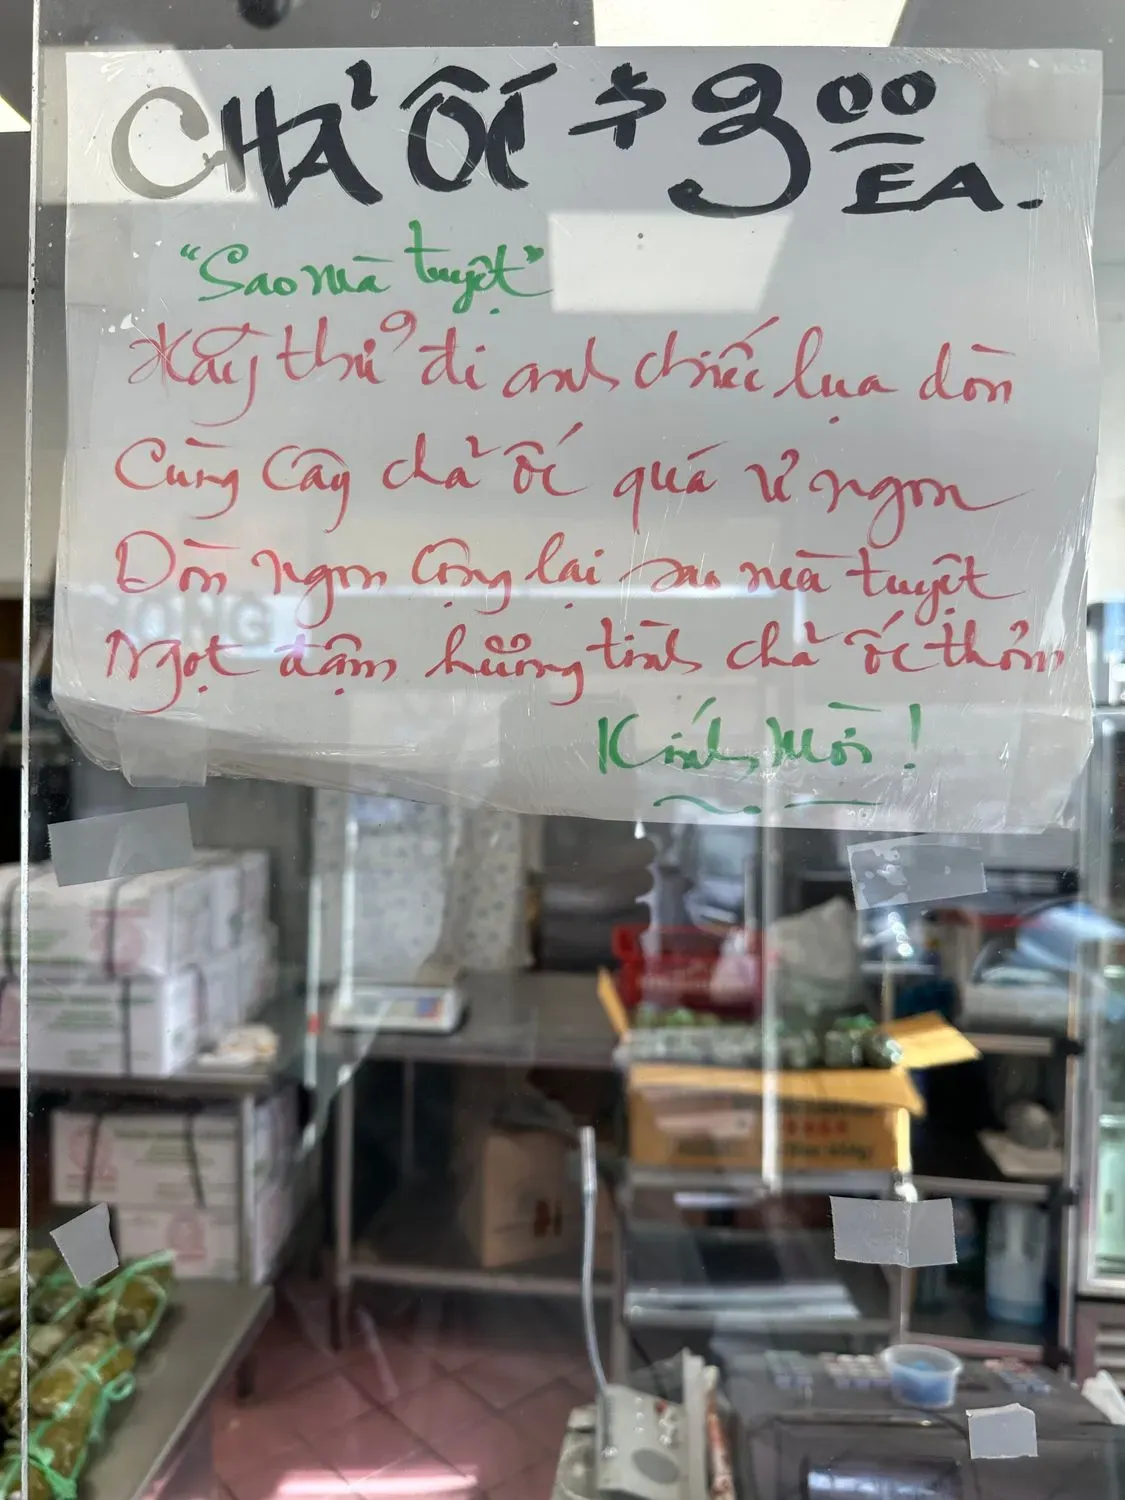 CHẢ ỐC $3.00 EA.
"Sao mà tuyệt"
Hãy thử đi anh chiếc lụa dòn
Cùng cây chả ốc quá ư ngon
Dòn ngon cộng lại sao mà tuyệt
Ngọt đậm hương tình chả ốc thơm
Kính Mời!